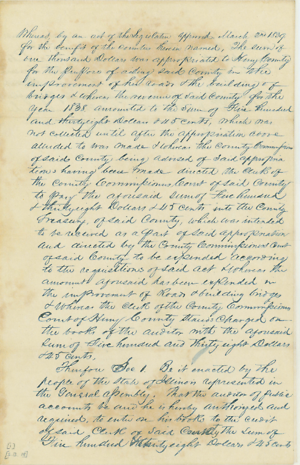 Whereas by an act of the Legislature approved March 2nd 1839
for the benefit of the counties therein named, The sum of
one thousand Dollars was appropriated to Henry County
for the purpose of aiding said County in the
improvement of her roads & the building of
bridges & whereas the revenue of said County for the
year 1838 amounted to the sum of five hundred
and thirty eight Dollars & 45 cents, which was
not collected until after the appropriation above
alluded to was made & whereas the County Commissioners
of said County being advised of said appropria
tions having been made directed the clerk of
the County Commissioners Court of said County
to pay the aforesaid sum of five hundred
& thirty eight Dollars & 45 Cents into the County
Treasury of said County which was intended
to be received as a part of said appropriation
and directed by the County Commissioners Court
of said County to be expended according
to the requisitions of said act & whereas the
amount aforesaid has been expended in
the improvement of Roads & building bridges
& Whereas the Clerk of the County Commissioners
Court of Henry County stands charged on
the books of the auditor with the aforesaid
sum of five hundred and thirty eight Dollars
& 45 Cents.
Therefore Sec 1 Be it enacted by the
people of the State of Illinois represented in
the General Assembly. That the auditor of public
accounts be and he is hereby authorized and
required, to enter on his books to the credit
of said Clerk of said County the sum of
five hundred & thirty eight Dollars & 45 cents